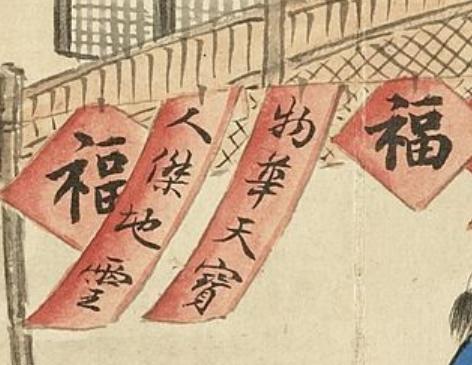 福
物華天寳
人傑地霊
福